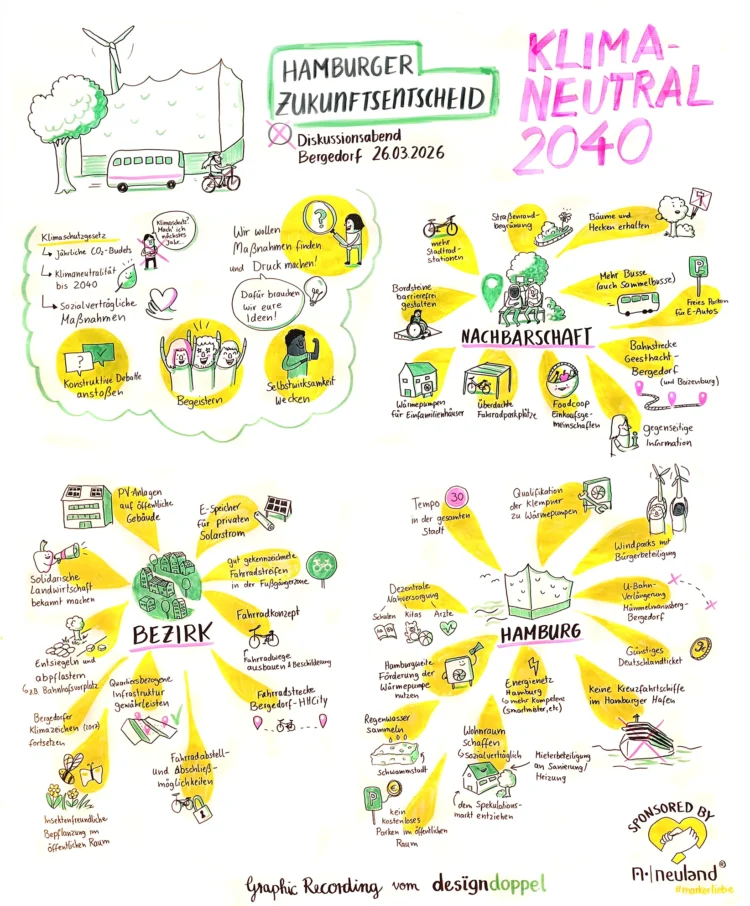 HAMBURGER
ZUKUNFTSENTSCHEID
Diskussionsabend
Bergedorf 26.03.2026
KLIMA-
NEUTRAL
2040
Klimaschutzgesetz
jährliche CO2-Budets
Klimaneutralität
bis 2040
Sozialverträgliche
Maßnahmen
Klimaschutz?
Mach' ich
nächstes
Jahr...
Wir wollen
Maßnahmen finden
und Druck machen!
?
Dafür brauchen
wir eure
Ideen!
?
Konstruktive Debatte
anstoßen
Begeistern
Selbstwirksamkeit
wecken
mehr
Stadtrad-
stationen
Straßenrand-
begrünung
Bäume und
Hecken erhalten
Bordsteine
barrierefrei
gestalten
Mehr Busse
(auch Sammelbusse)
P
Freies Parken
für E-Autos
NACHBARSCHAFT
Wärmepumpen
für Einfamilienhäuser
Überdachte
Fahrradparkplätze
Foodcoop
Einkaufsge-
meinschaften
Bahnstrecke
Geesthacht-
Bergedorf
(und Boizenburg)
gegenseitige
Information
i
PV-Anlagen
auf öffentliche
Gebäude
E-Speicher
für privaten
Solarstrom
Solidarische
Landwirtschaft
bekannt machen
gut gekennzeichnete
Fahrradstreifen
in der Fußgängerzone
BEZIRK
Fahrradkonzept
Fahrradwege
ausbauen & Beschilderung
Entsiegeln und
abpflastern
z.B. Bahnhofsvorplatz
Quartiersbezogene
Infrastruktur
gewährleisten
Fahrradstrecke
Bergedorf-HHCity
Bergedorfer
Klimazeichen (2017)
fortsetzen
Fahrradabstell-
und Abschließ-
möglichkeiten
Insektenfreundliche
Bepflanzung im
öffentlichen Raum
Tempo 30
in der gesamten
Stadt
Qualifikation
der Klempner
zu Wärmepumpen
Windparks mit
Bürgerbeteiligung
Dezentrale
Nahversorgung
Schulen Kitas Ärzte
HAMBURG
U-Bahn-
Verlängerung
Mümmelmannsberg-
Bergedorf
Günstiges
Deutschlandticket
Hamburgweite
Förderung der
Wärmepumpe
nutzen
Energienetz
Hamburg
mehr Kompetenz
(smartmeter, etc)
Keine Kreuzfahrtschiffe
im Hamburger Hafen
Regenwasser
sammeln
Schwammstadt
Wohnraum
schaffen
sozialverträglich
Mieterbeteiligung
an Sanierung/
Heizung
dem Spekulations-
markt entziehen
P
€
kein
kostenloses
Parken im öffentlichen
Raum
SPONSORED BY
neuland®
#markerliebe
Graphic Recording vom designdoppel